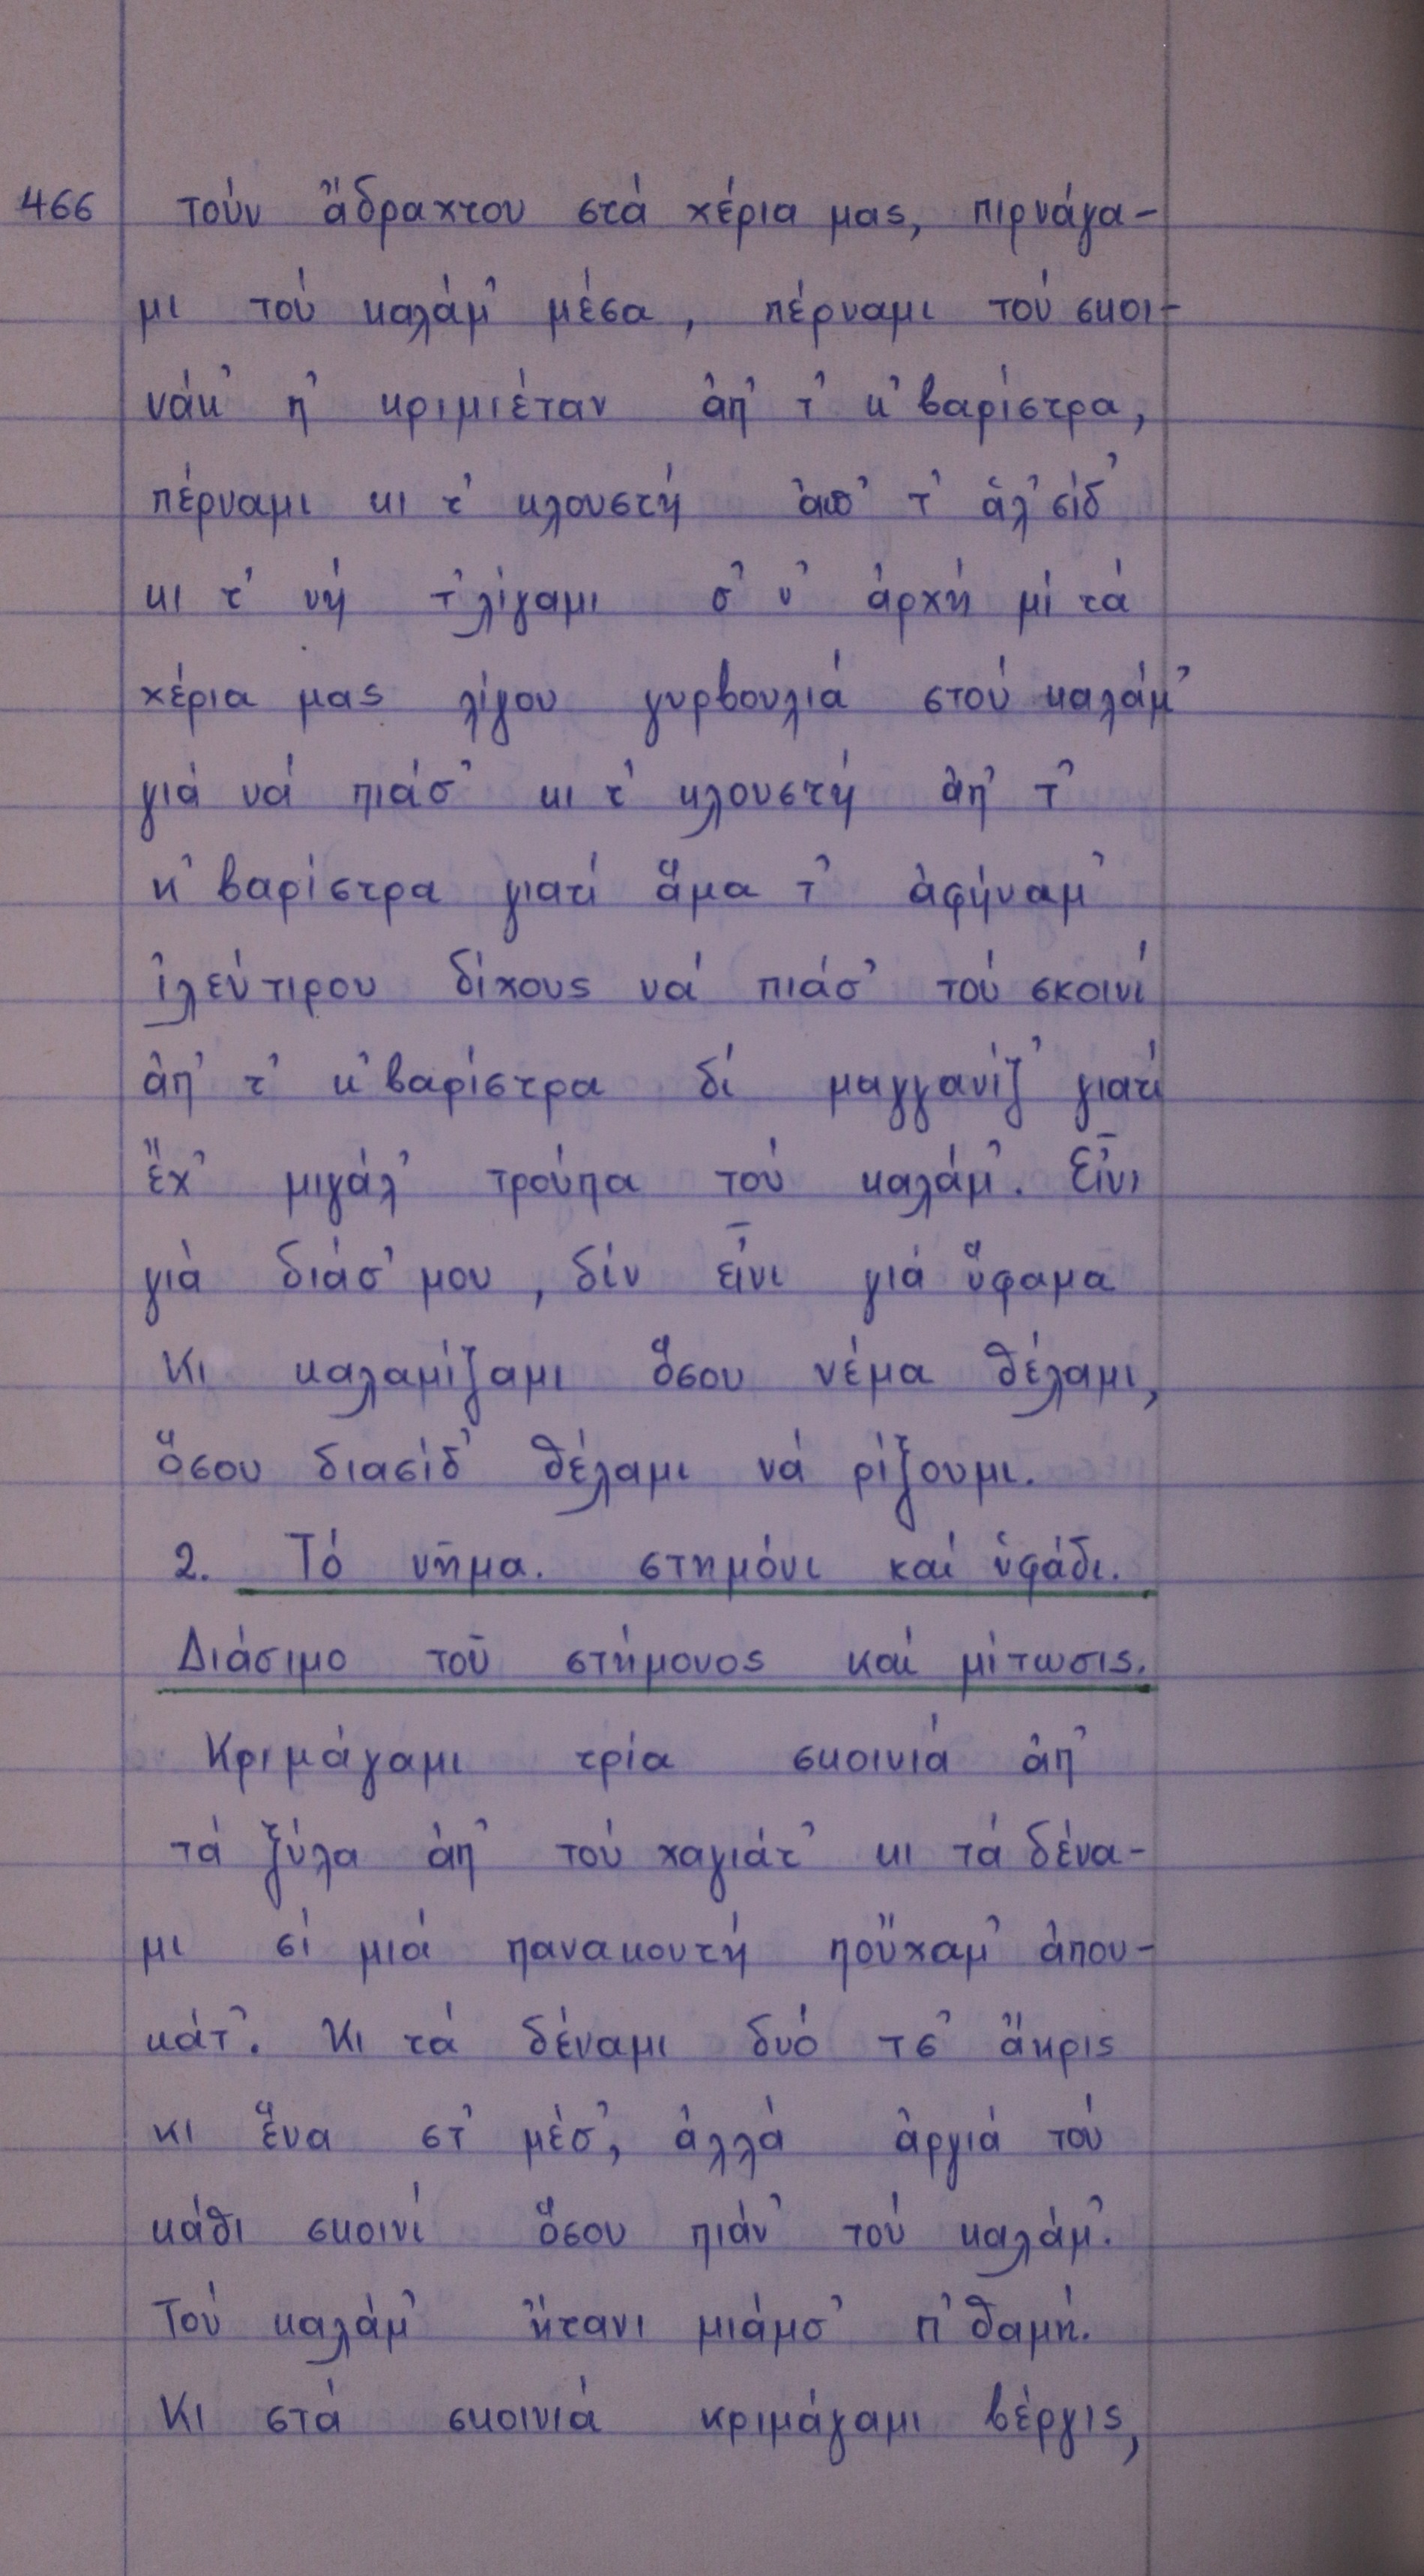 466 τούν ἄδραχτου στά χέρια μας, πιρνάγα-
μι τού καλάμ' μέσα, πέρναμι τού σκοι-
νάκ' π' κριμιέταν ἀπ' τ' κ'βαρίστρα,
πέρναμι κι τ' κλουστή ἀπ' τ' ἁλ'σίδ'
κι τ' νή τ'λίγαμι σ' ν' ἀρχή μί τά
χέρια μας λίγου γυρβουλιά στού καλάμ'
γιά νά πιάσ' κι τ' κλουστή ἀπ' τ'
κ'βαρίστρα γιατί ἅμα τ' ἀφήναμ'
ἰλεύτιρου δίχους νά πιάσ' τού σκοινί
ἀπ' τ' κ'βαρίστρα δί μαγγανίζ' γιατί
ἔχ' μιγάλ' τρούπα τού καλάμ'. Εἶνι
γιά διάσ'μου, δίν εἶνι γιά ὕφαμα
Κι καλαμίζαμι ὅσου νέμα θέλαμι,
ὅσου διασίδ' θέλαμι νά ρίξουμι.
2. Τό νῆμα. στημόνι καί ὑφάδι.
Διάσιμο τοῦ στήμονος καί μίτωσις.
Κριμάγαμι τρία σκοινιά ἀπ'
τά ξύλα ἀπ' τού χαγιάτ' κι τά δένα-
μι σί μιά πανακουτή ποὔχαμ' ἀπου-
κάτ'. Κι τά δέναμι δυό τσ' ἄκρις
κι ἕνα στ' μέσ', ἀλλά ἀργιά τού
κάθι σκοινί ὅσου πιάν' τού καλάμ'.
Τού καλάμ' ἤτανι μιάμσ' π'θαμή.
Κι στά σκοινιά κριμάγαμι βέργις,